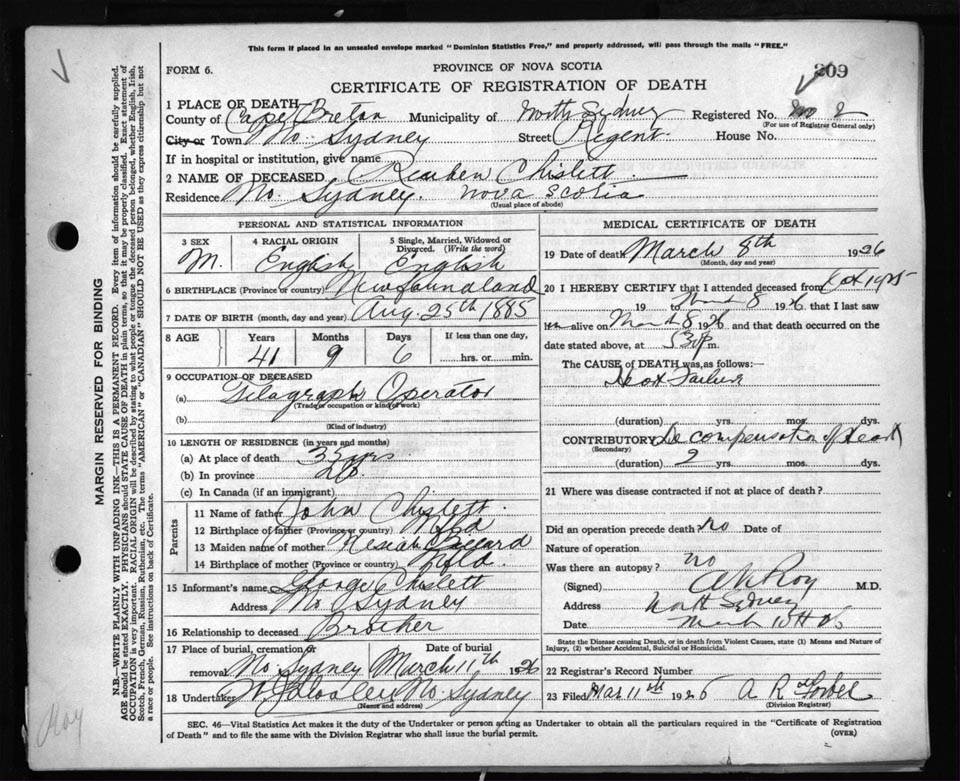 This form if placed in an unsealed envelope marked "Dominion Statistics Free," and properly addressed, will pass through the mails "FREE."
FORM 6.
PROVINCE OF NOVA SCOTIA
209
CERTIFICATE OF REGISTRATION OF DEATH
1 PLACE OF DEATH
County of Cape Breton Municipality of North Sydney Registered No.
(For use of Registrar General only)
City or Town No. Sydney Street Regent House No.
If in hospital or institution, give name
2 NAME OF DECEASED. Reuben Chislett
Residence No. Sydney. Nova Scotia
(Usual place of abode)
PERSONAL AND STATISTICAL INFORMATION
3 SEX 4 RACIAL ORIGIN 5 Single, Married, Widowed or Divorced. (Write the word)
M. English English
6 BIRTHPLACE (Province or country) Newfoundland
7 DATE OF BIRTH (month, day and year) Aug. 25th 1885
8 AGE Years Months Days If less than one day,
41 9 6 hrs. or min.
9 OCCUPATION OF DECEASED
(a) Telagraph Operator
(Trade or occupation or kind of work)
(b)
(Kind of industry)
10 LENGTH OF RESIDENCE (in years and months)
(a) At place of death 35 yrs
(b) In province
(c) In Canada (if an immigrant)
Parents
11 Name of father John Chislett.
12 Birthplace of father (Province or country) Nfld
13 Maiden name of mother
14 Birthplace of mother (Province or country) Nfld.
15 Informant's name George Chislett
Address No Sydney
16 Relationship to deceased Brother
17 Place of burial, cremation or removal Date of burial
No Sydney March 11th 1926
18 Undertaker No. Sydney
(Name and address)
MEDICAL CERTIFICATE OF DEATH
19 Date of death March 8th 1926
(Month, day and year)
20 I HEREBY CERTIFY that I attended deceased from Oct 1925
19 to March 8 1926 that I last saw
him alive on March 8 1926 and that death occurred on the
date stated above, at 530 p m.
The CAUSE of DEATH was, as follows:
Heart Failure
(duration) yrs. mos. dys.
CONTRIBUTORY Decompensation of Heart
(Secondary)
(duration) 2 yrs. mos. dys.
21 Where was disease contracted if not at place of death?
Did an operation precede death? no Date of
Nature of operation
Was there an autopsy? no
(Signed) Roy M.D.
Address North Sydney
Date March
State the Disease causing Death, or in death from Violent Causes, state (1) Means and Nature of Injury, (2) whether Accidental, Suicidal or Homicidal.
22 Registrar's Record Number
23 Filed Mar 11th 1926
(Division Registrar)
SEC. 46—Vital Statistics Act makes it the duty of the Undertaker or person acting as Undertaker to obtain all the particulars required in the "Certificate of Registration
of Death" and to file the same with the Division Registrar who shall issue the burial permit. (OVER)
MARGIN RESERVED FOR BINDING
N.B.—WRITE PLAINLY WITH UNFADING INK—THIS IS A PERMANENT RECORD. Every item of information should be carefully supplied.
AGE should be stated EXACTLY. PHYSICIANS should STATE CAUSE OF DEATH in plain terms, so that it may be properly classified. Exact statement of
OCCUPATION is very important. RACIAL ORIGIN will be described by stating to what people or tongue the deceased person belonged, whether English, Irish,
Scotch, French, German, Russian, Ruthenian, etc. The terms "AMERICAN" or "CANADIAN" SHOULD NOT BE USED as they express citizenship but not
a race or people. See instructions on back of Certificate.